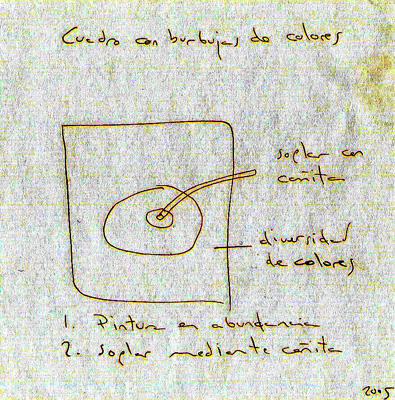 Cuadro con burbujas de colores
soplar con
cañita
diversidad
de colores
1. Pintura en abundancia
2. Soplar mediante cañita
2005